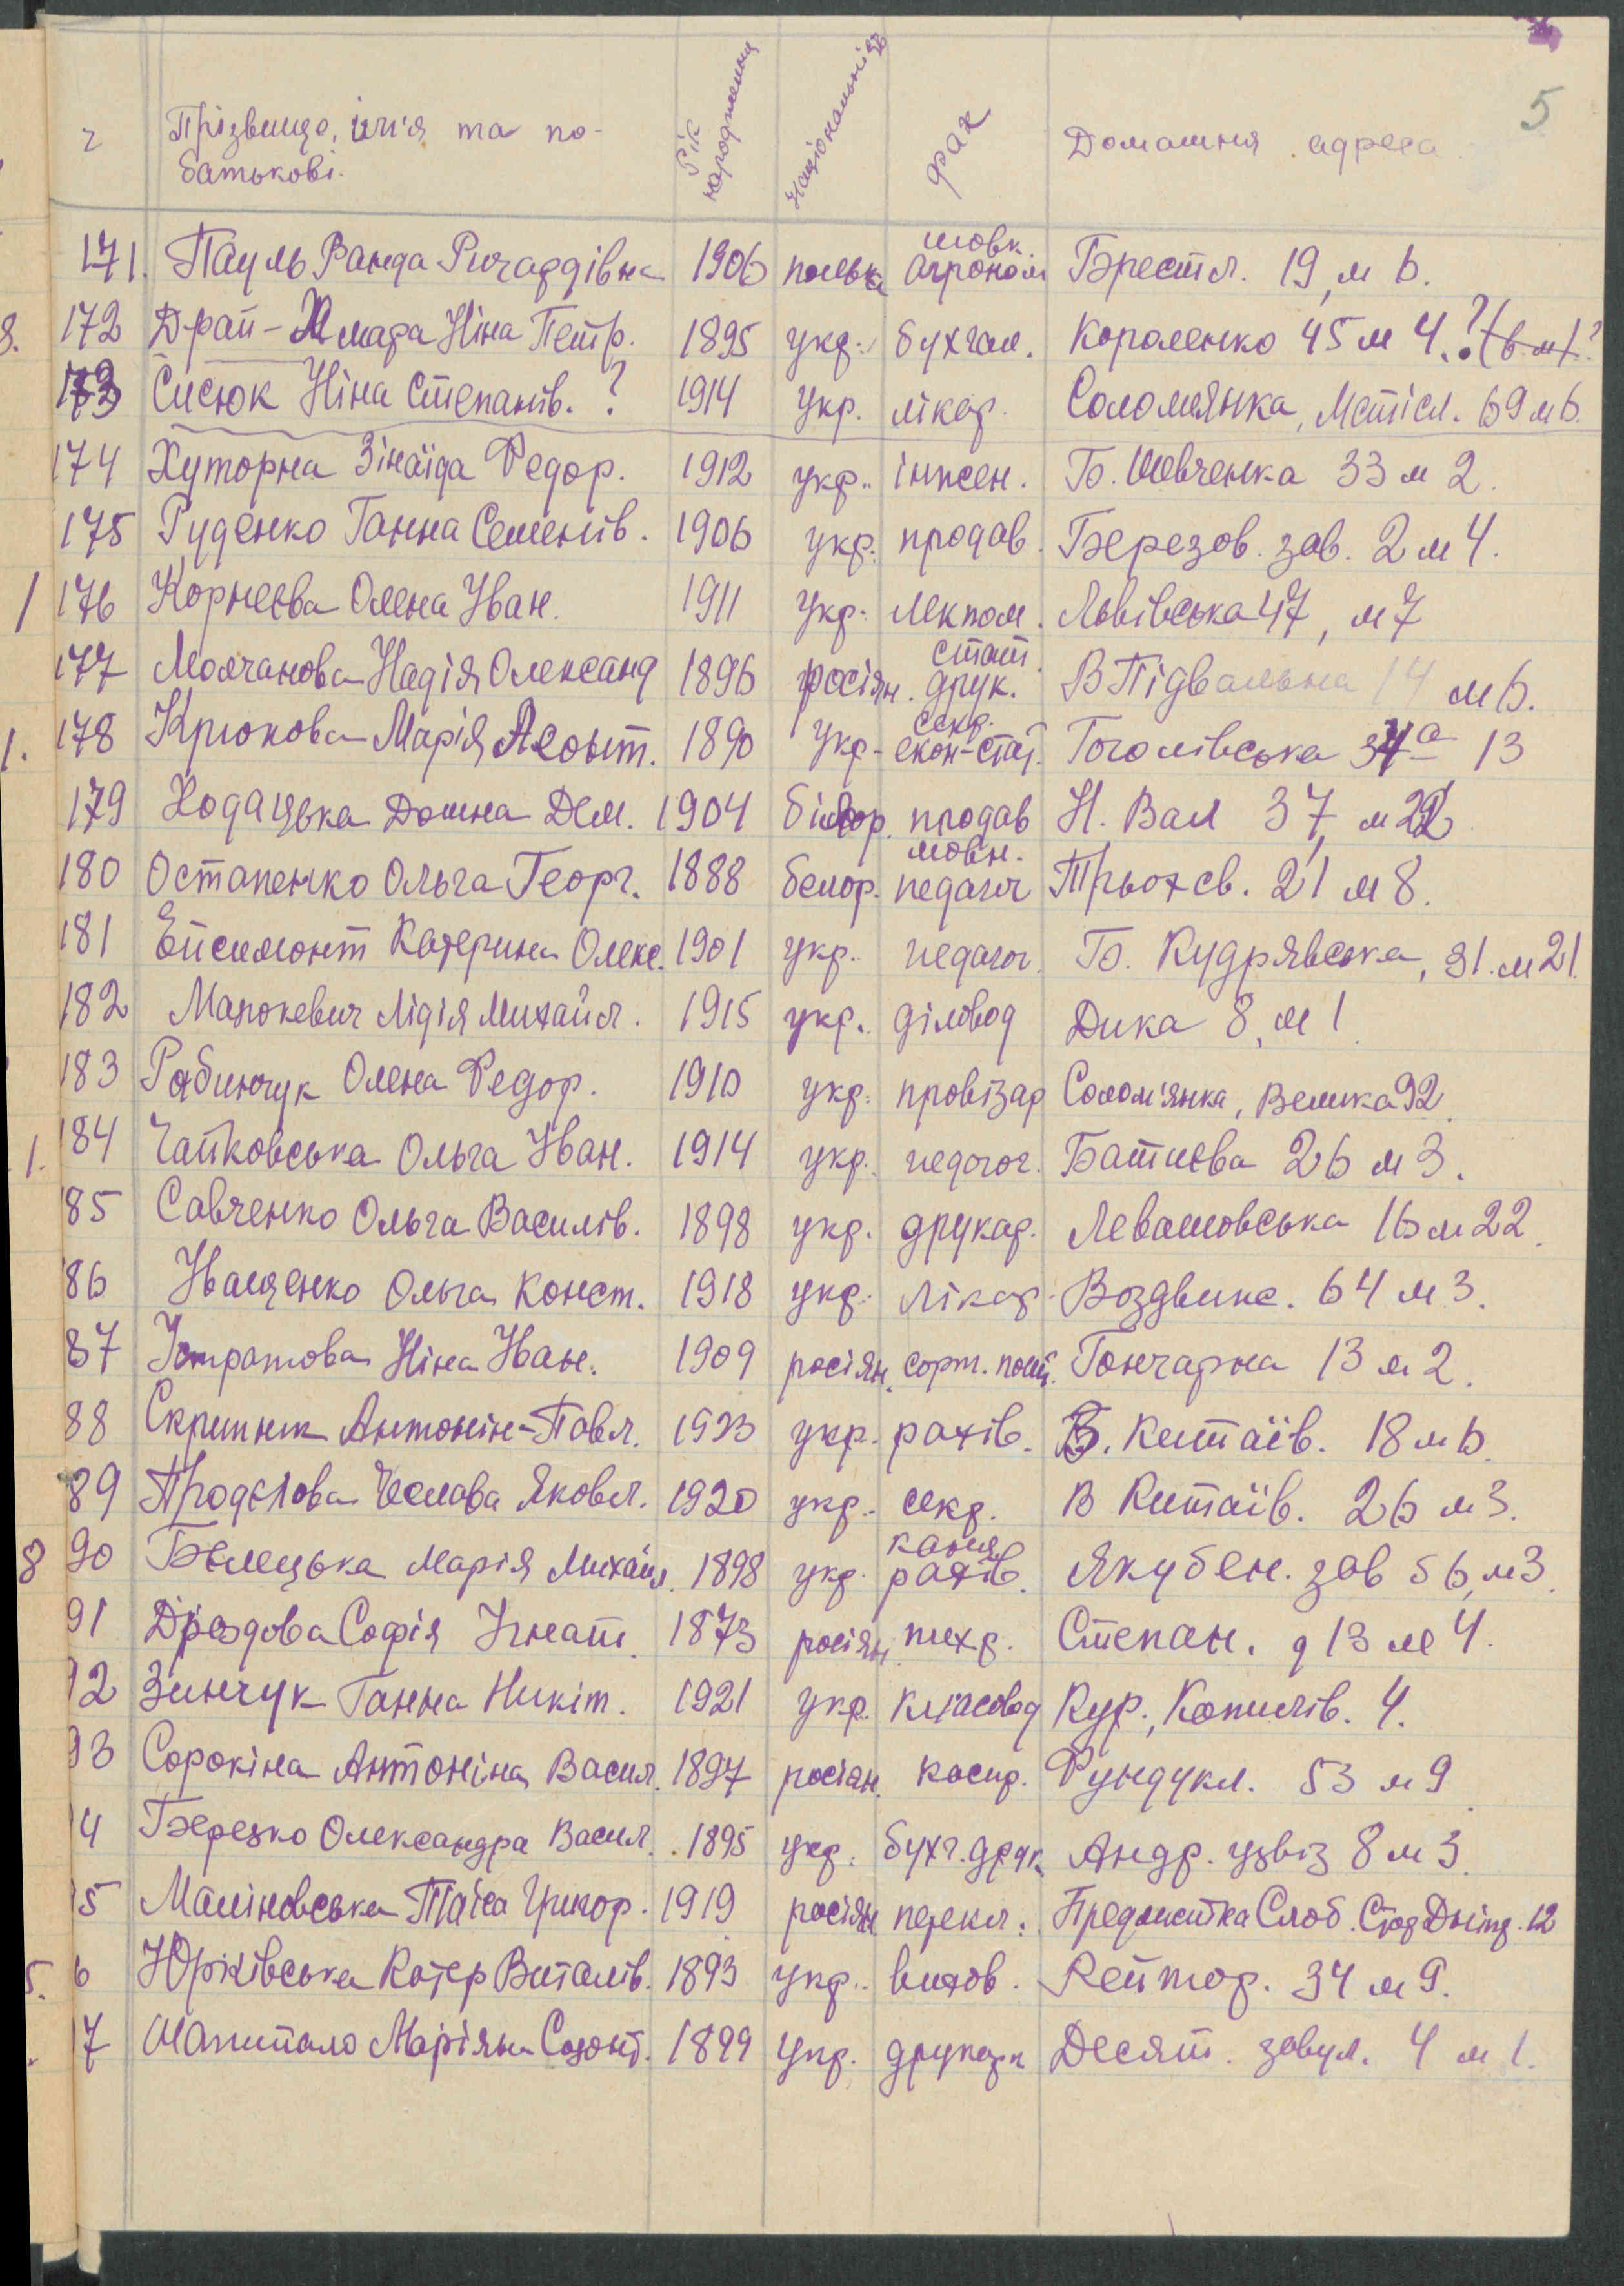 5
Прізвище, ім'я та по-батькові. Рік народження Національність Фах Домашня адреса
171. Пауль Ванда Ричардівна 1906 полька шовк. агроном Брестл. 19, м 6.
172 Драй-Хмара Ніна Петр. 1895 укр. бухгал. Короленко 45 м 4.?
173 Сисюк Ніна Степанів. ? 1914 укр. лікар. Соломянка, Мстісл. 69 м 6.
174 Хуторна Зінаїда Федор. 1912 укр. інжен. Б. Шевченка 33 м 2.
175 Руденко Ганна Семенів. 1906 укр. продав. Березов. зав. 2 м 4.
176 Корнеєва Олена Іван. 1911 укр. лекпом. Львівська 47, м 7
177 Молчанова Надія Олександ 1896 росіян. стат. друк. В Підвальна 14 м 6.
178 Крюкова Марія Леонт. 1890 укр. секр. екон-стат. Гоголівська 34а 13
179 Ходацька Домна Дем. 1904 білор. продав Н. Вал 37, м 22
180 Остапенко Ольга Георг. 1888 белор. мовн. педагог Трьохсв. 21 м 8.
181 Ейсимонт Катерина Олекс. 1901 укр. педагог. Б. Кудрявська, 31. м 21.
182 Манокевич Лідія Михайл. 1915 укр. діловод Дика 8, м 1
183 Рабинчук Олена Федор. 1910 укр. провізар Солом'янка, Велика 92.
184 Чайковська Ольга Іван. 1914 укр. педагог. Батиєва 26 м 3.
85 Савченко Ольга Василів. 1898 укр. друкар. Левашовська 16 м 22.
86 Іващенко Ольга Конст. 1918 укр. лікар. Воздвиж. 64 м 3.
87 Ніна Іван. 1909 росіян. сорт. пошт. Гончарна 13 м 2.
88 Скрипник Антонін Павл. 1923 укр. рахів. В. Китаїв. 18 м 6.
89 Чеслава Яковл. 1920 укр. секр. В Китаїв. 26 м 3.
90 Белецька Марія Михайл. 1898 укр. рахів. Якубен. зав 56, м 3.
91 Дроздова Софія Ігнат. 1873 росіян. техр. Степан. д 13 м 4.
92 Зинчук Ганна Никіт. 1921 укр. Кур., Копилів. 4.
93 Сорокіна Антоніна Васил. 1897 росіян. касир. Фундукл. 53 м 9.
4 Березко Олександра Васил. 1895 укр. бухг. друк. Андр. узвіз 8 м 3.
5 Маліновська Таїса Григор. 1919 росіян перекл. Предмостка Слоб. Стар Дніпр. 12
6 Юрківська Катер Виталів. 1893 укр. вихов. Рейтар. 34 м 9.
7 Шапитало Маріяна Созонт. 1899 укр. друкарк Десят. завул. 4 м 1.